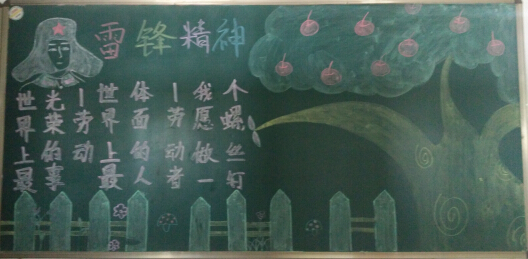 雷锋精神
世界上最
光荣的事
—劳动
世界上最
体面的人
—劳动者
我愿做一
个螺丝钉